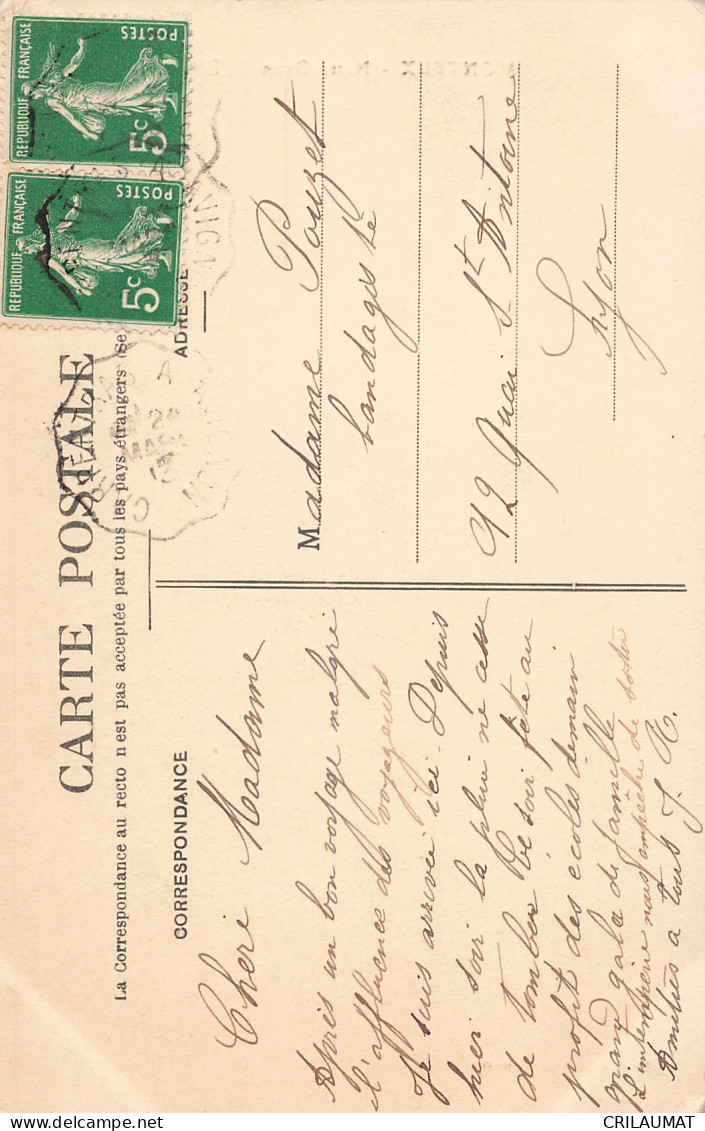 CARTE POSTALE
La Correspondance au recto n'est pas acceptée par tous les pays étrangers (Se
CORRESPONDANCE
ADRESSE
Chere Madame
Après un bon voyage malgré
l'affluence des voyageurs
Je suis arrivée ici. Depuis
hier soir la pluie ne cesse
de tomber Ce soir fête au
profit des écoles demain
grand gala de famille
L'intemperie nous empêche de sortir
Amitiés a tous J. R.
Madame Pouzet
bandagiste
92 Quai St Antoine
Lyon
REPUBLIQUE FRANÇAISE
POSTES
5c
REPUBLIQUE FRANÇAISE
POSTES
5c
24
MARS
13
CRILAUMAT